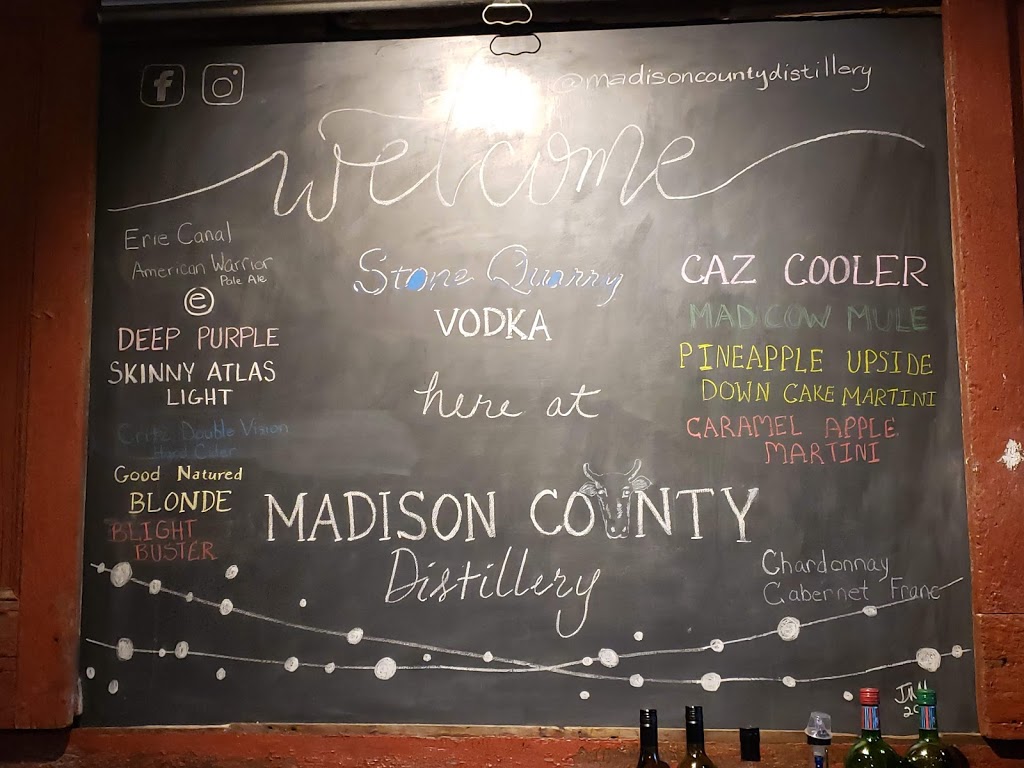 @madisoncountydistillery
welcome
Erie Canal
American Warrior
Pale Ale
e
DEEP PURPLE
SKINNY ATLAS
LIGHT
Critz Double Vision
Hard Cider
Good Natured
BLONDE
BLIGHT
BUSTER
Stone Quarry
VODKA
here at
MADISON COUNTY
Distillery
CAZ COOLER
MAD COW MULE
PINEAPPLE UPSIDE
DOWN CAKE MARTINI
CARAMEL APPLE
MARTINI
Chardonnay
Cabernet Franc